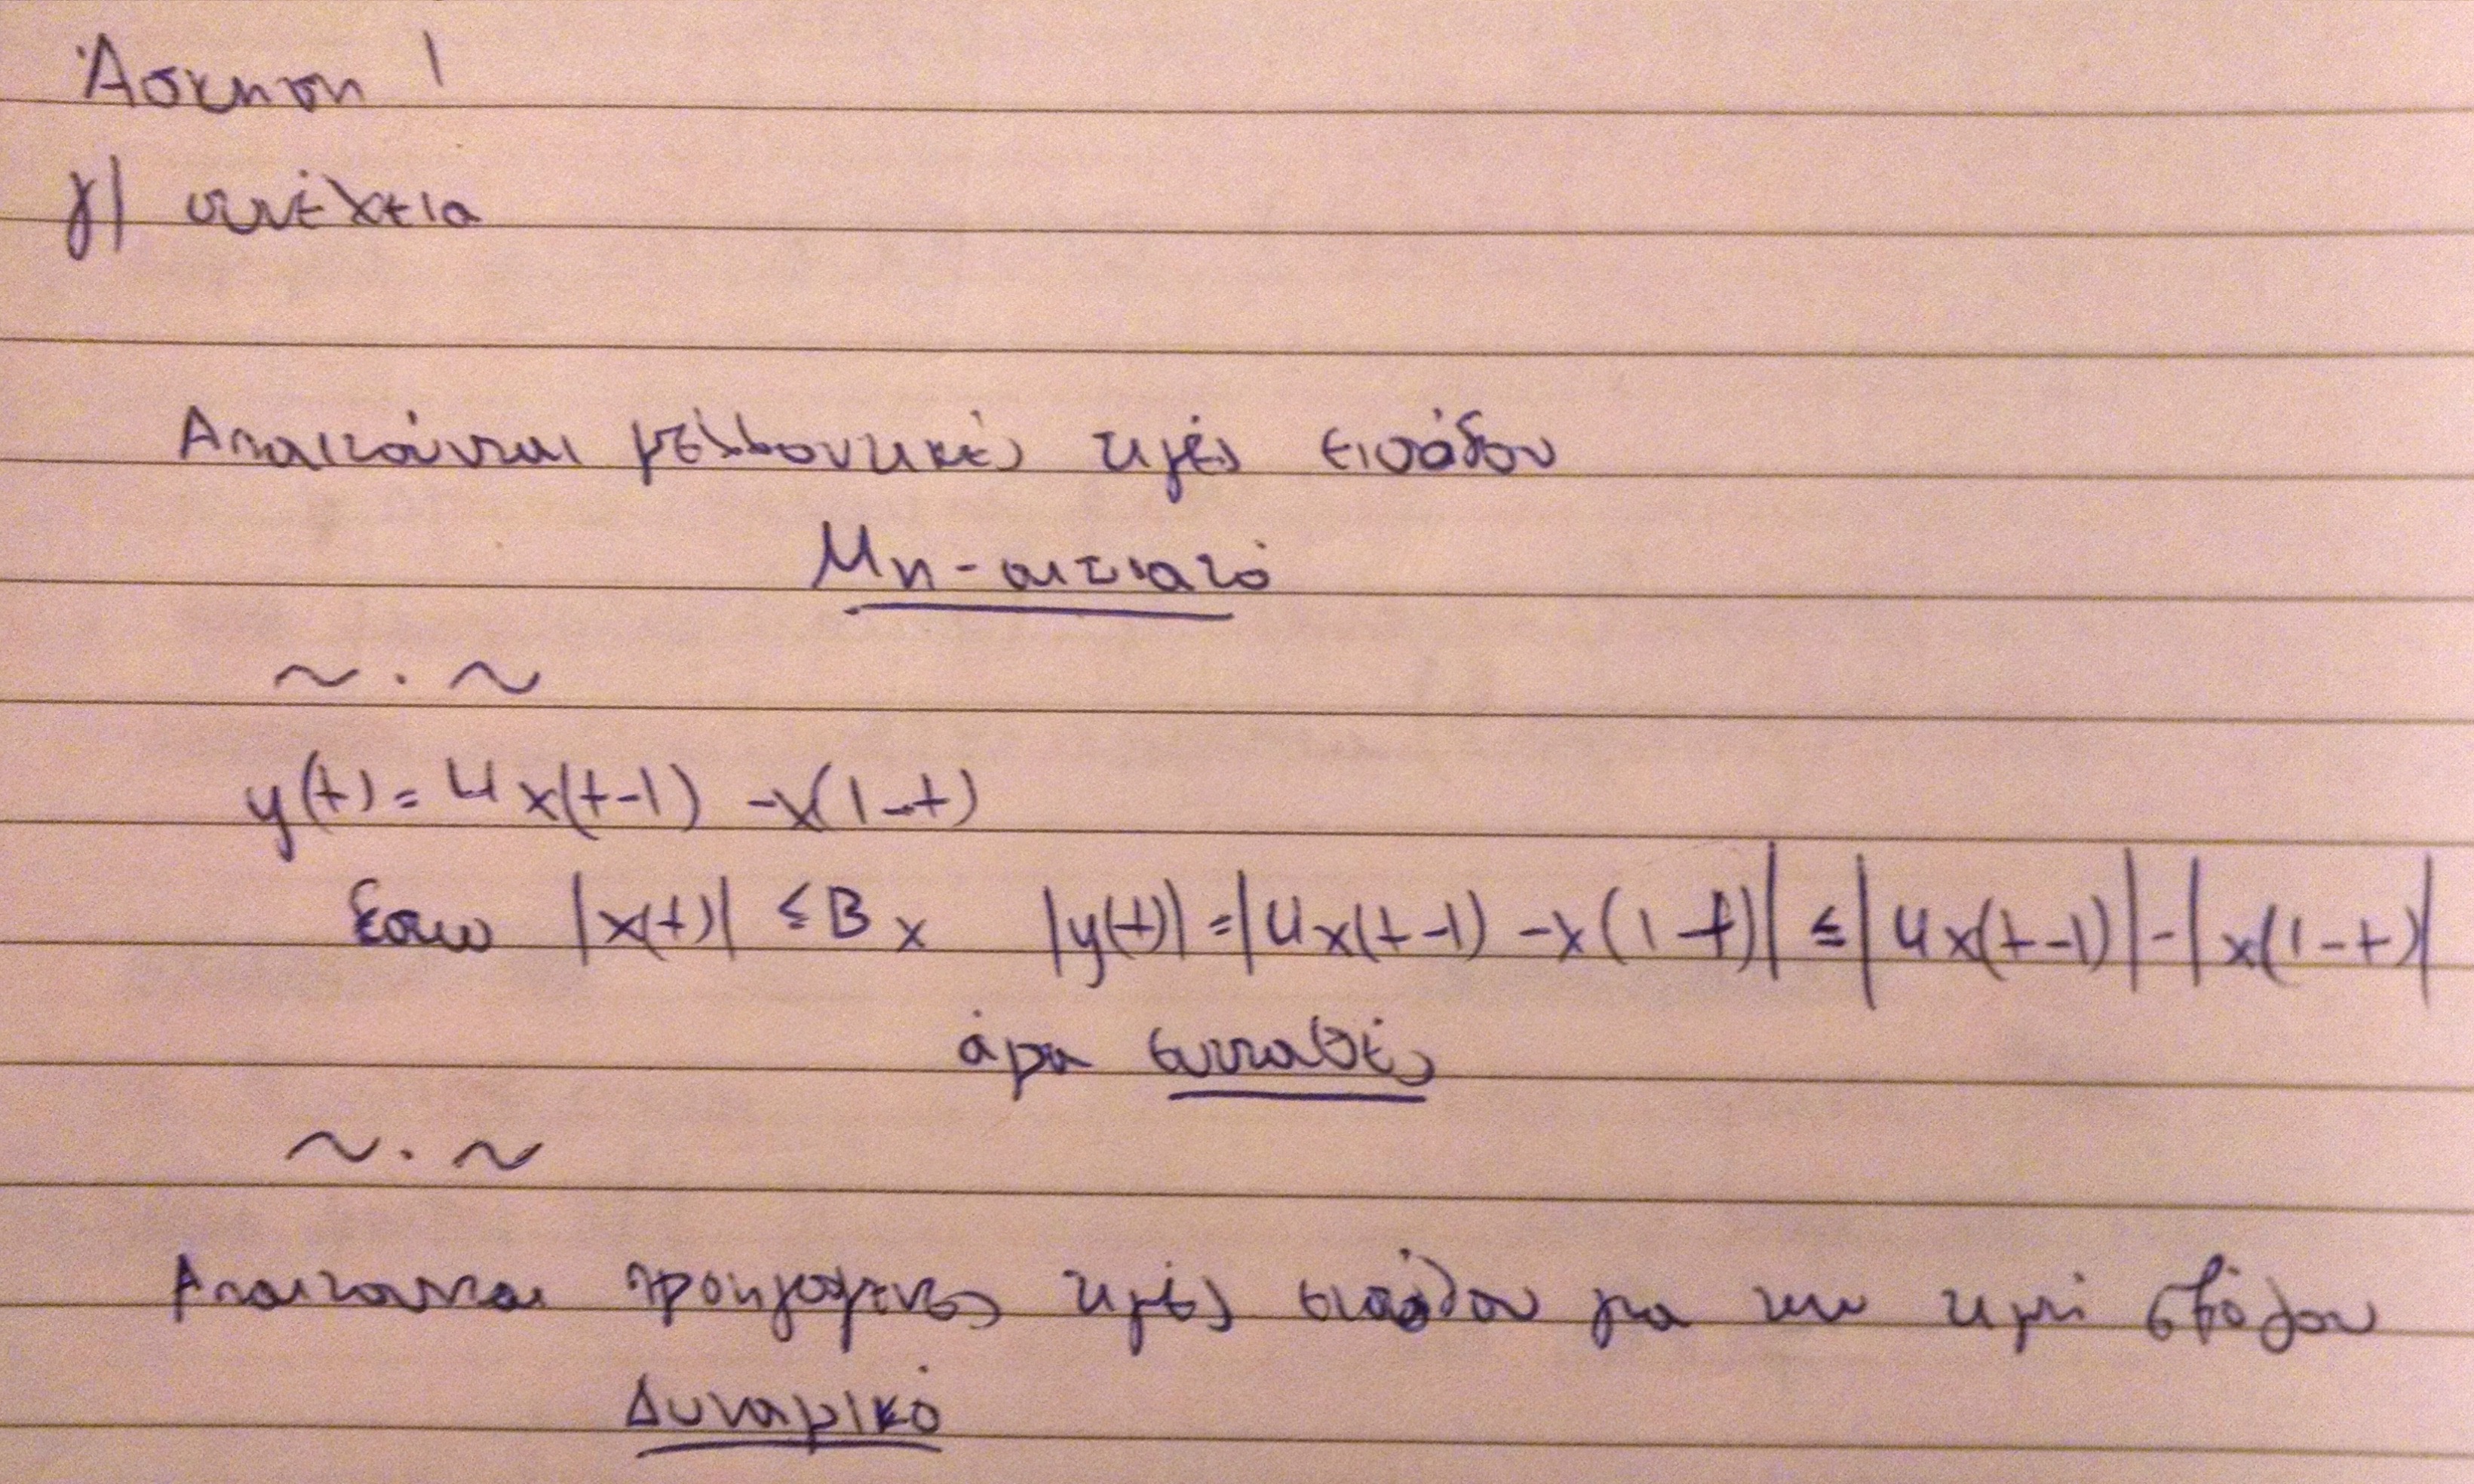 Άσκηση 1
γ) συνέχεια
Απαιτούνται μελλοντικές τιμές εισόδου
Μη-αιτιατό
~.~
y(t)= 4x(t-1) -x(1-t)
Έστω |x(t)| ≤ Bx |y(t)|=|4x(t-1) -x(1-t)| ≤ |4x(t-1)|-|x(1-t)|
άρα ευσταθές
~.~
Απαιτούνται προηγούμενες τιμές εισόδου για την τιμή εξόδου
Δυναμικό